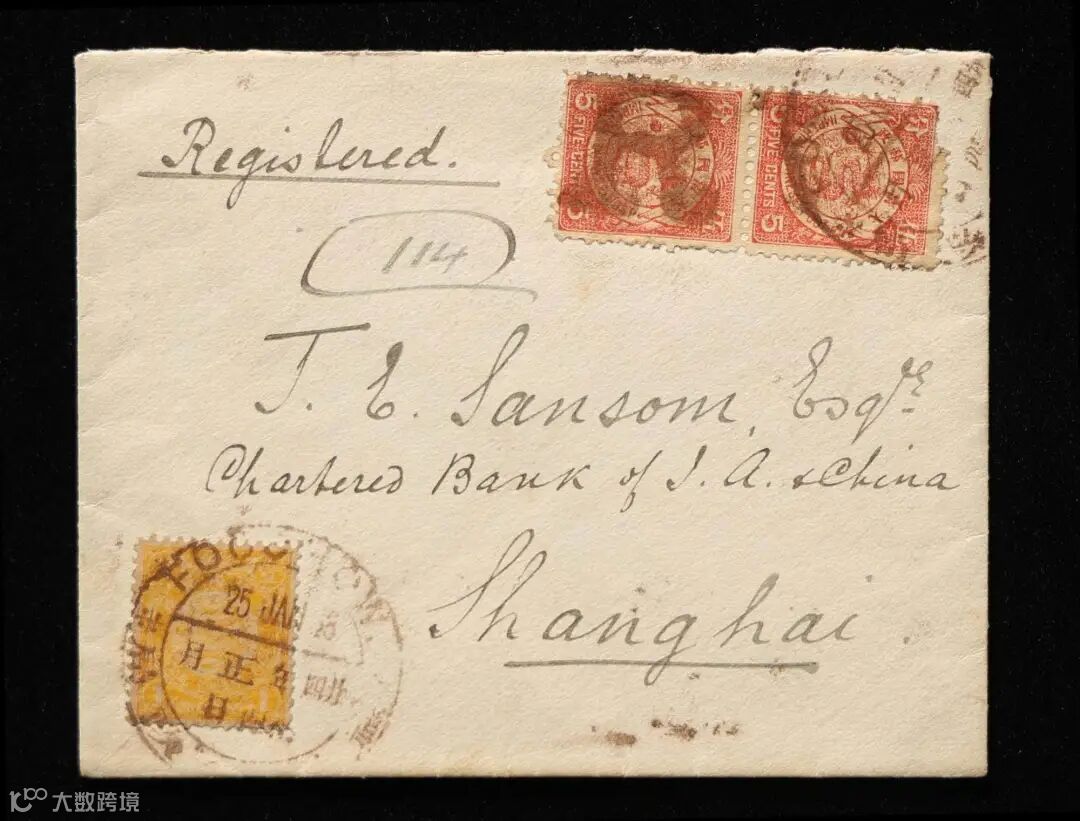 Registered.
114
5 FIVE CENTS 5
5 FIVE CENTS 5
J. E. Sansom, Esqre
Chartered Bank of I. A. & China
Shanghai.
FOOCHOW.
25 JAN
月正年
日
大数跨境